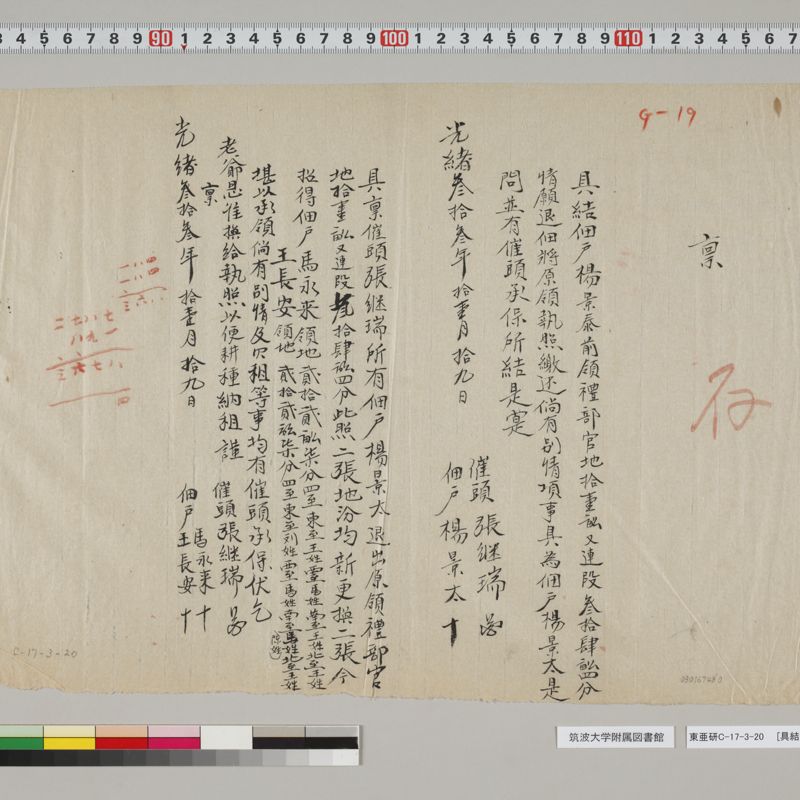 3 4 5 6 7 8 9 90 1 2 3 4 5 6 7 8 9 100 1 2 3 4 5 6 7 8 9 110 1 2 3 4 5 6 7
9-19
稟
存
具結佃戶楊景泰前領禮部官地拾畫畝又連段叁拾肆畝四分
情願退佃將原領執照繳还倘有別情項事具為佃戶楊景太是
問並有催頭承保所結是寔
催頭張继瑞
佃戶楊景太十
光緒叁拾叁年拾壹月拾九日
具稟催頭張継瑞所有佃戶楊景太退出原領禮部官
地拾畫畝又連段拾肆畝四分此照二張地汾均新更換二張今
招得佃戶馬永来領地貳拾貳畝柒分四至東至王姓西至馬姓南至王姓北至王姓
王長安領地貳拾貳畝柒分四至東至刘姓西至馬姓南至馬姓北至王姓
陳姓
堪以承領倘有別情及欠租等事均有催頭承保伏乞
老爺恩准換給執照以便耕種納租謹
稟
催頭張継瑞
馬永来十
佃戶王長安十
光緒叁拾叁年拾壹月拾九日
C-17-3-20
筑波大学附属図書館
東亜研C-17-3-20 [具結